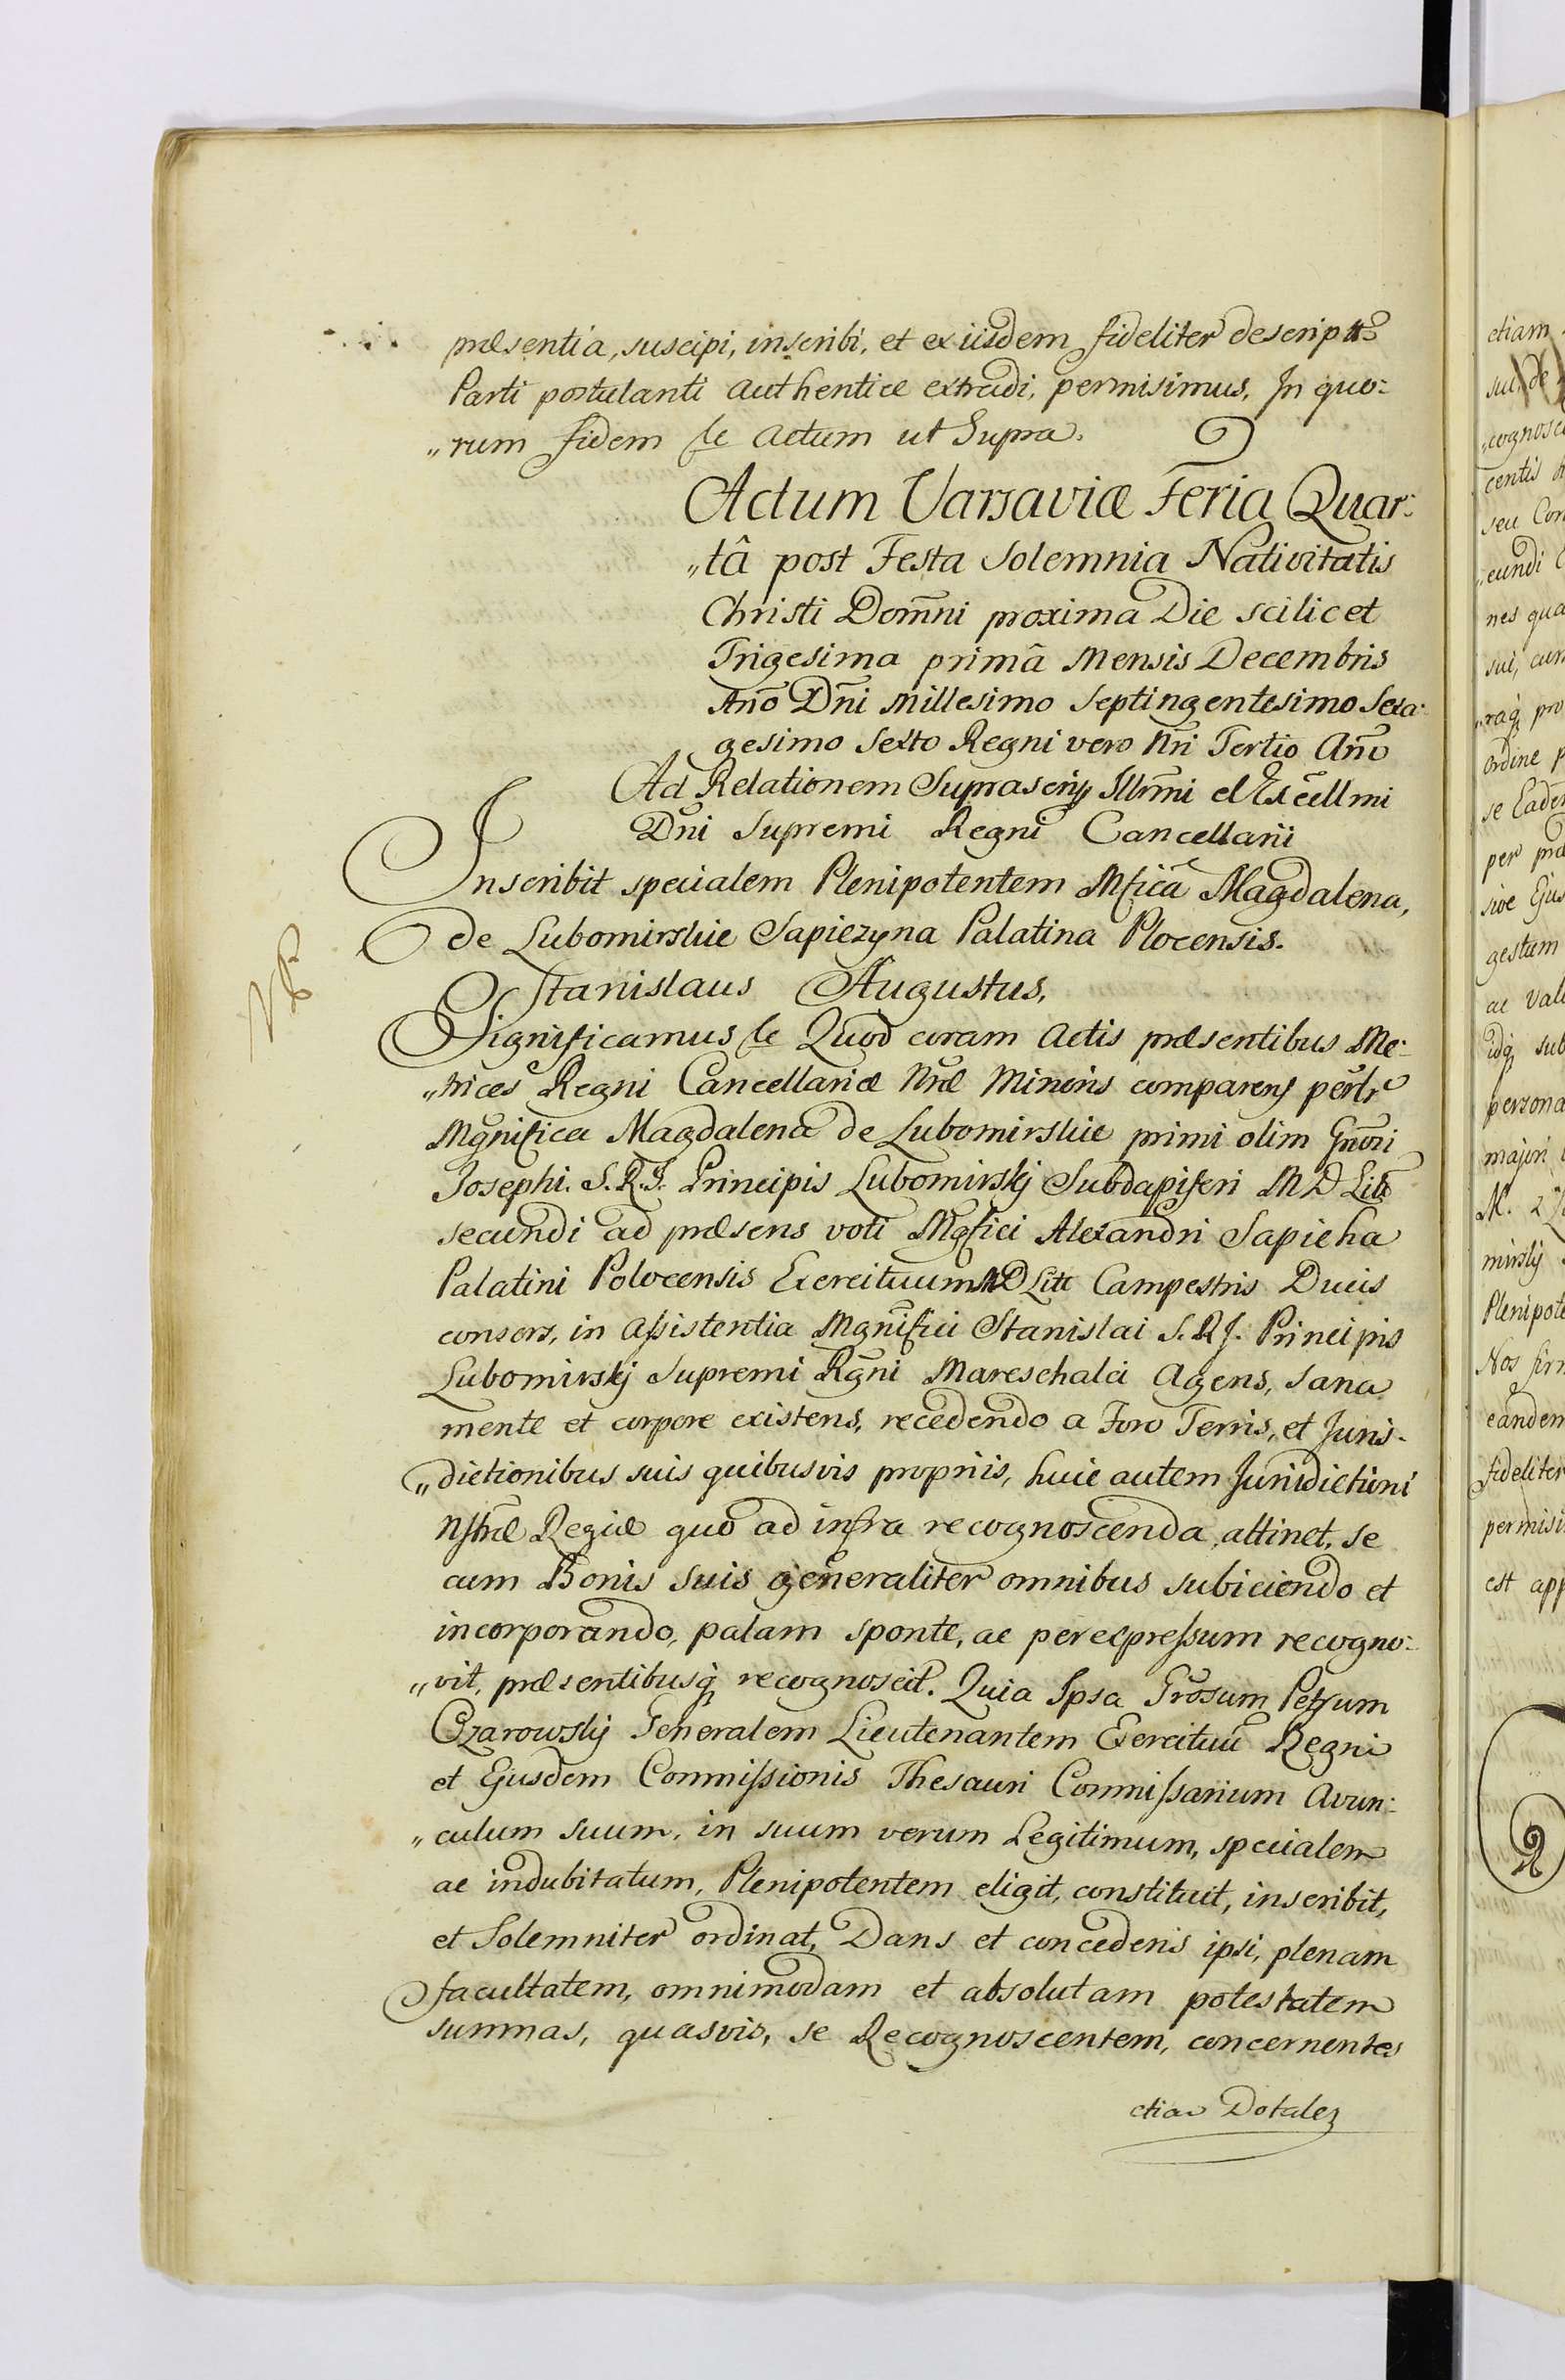 præsentia, suscipi, inscribi, et ex iisdem fideliter descripta
Parti postulanti authentice extradi, permisimus, In quo:
„rum fidem &c Actum ut Supra.
Actum Varsaviæ Feria Quar:
„tâ post Festa Solemnia Nativitatis
Christi Dom̄ni proxima Die scilicet
Trigesima primâ Mensis Decembris
An̄o Dn̄i Millesimo Septingentesimo Sexa:
gesimo Sexto Regni vero Nr̄i Tertio An̄o
Ad Relationem Suprascrip Illrm̄i et Excellmi
Dn̄i Supremi Regni Cancellarii
Inscribit specialem Plenipotentem Mfica Magdalena,
de Lubomirskie Sapiezyna Palatina Plocensis.
NB
Stanislaus Augustus,
Significamus &c Quod coram Actis præsentibus Me:
„trices Regni Cancellariæ Nr̄æ Minoris comparens perlr
Mgnifica Magdalena de Lubomirskie primi olim Gn̄ori
Josephi. S. R. I. Principis Lubomirskj Subdapiferi M D Litt
secundi ad præsens voti Mgfici Alexandri Sapieha
Palatini Polocensis Exercituum MD Litt Campestris Ducis
consors, in assistentia Mgnifici Stanislai S. R I. Principis
Lubomirskj Supremi Rgn̄i Mareschalci Agens, sana
mente et corpore existens, recedendo a Foro Terris, et Juris-
„dictionibus suis quibusvis propriis, huic autem Jurisdictioni
Nstræ Regiæ quo ad infra recognoscenda, attinet, se
cum Bonis suis generaliter omnibus subiciendo et
incorporando, palam sponte, ac per expressum recogno:
„vit, præsentibusq recognoscit. Quia Ipsa Grosum Petrum
Ozarowskj Generalem Lieutenantem Exercituū Regni
et Ejusdem Commissionis Thesauri Commissarium Avun:
„culum suum, in suum verum Legitimum, specialem
ac indubitatum, Plenipotentem eligit, constituit, inscribit,
et Solemniter ordinat, Dans et concedens ipsi, plenam
facultatem, omnimodam et absolutam potestatem
summas, quasvis, se Recognoscentem, concernentes
etiam
„cognosce
centis
seu
nes
sui,
ordine
se Eadem
per
sive Ejus
gestum
ac
sub
persona
majori
M.
Plenipote
Nos
eandem
fideliter
permisi
est app
etiam Dotales